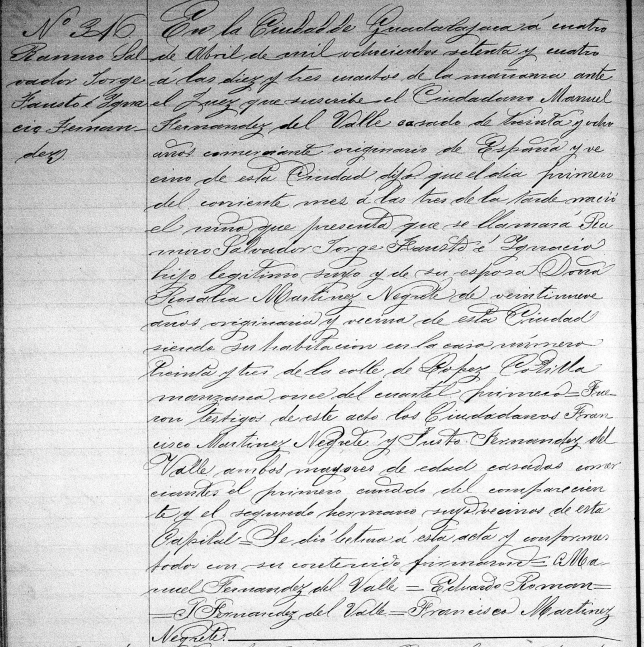 Nº 316
Ramiro Sal-
vador Jorge
Fausto é Ygna-
cio Fernan-
dez
En la Ciudad de Guadalajara á cuatro
de Abril de mil ochocientos setenta y cuatro
a las diez y tres cuartos de la mañana ante
el Juez que suscribe el Ciudadano Manuel
Fernandez del Valle casado de treinta y ocho
años comerciante originario de España y ve
cino de esta Ciudad dijo que el dia primero
del corriente mes á las tres de la tarde nació
el niño que presenta que se llamará Ra
miro Salvador Jorge Fausto é Ygnacio
hijo legitimo suyo y de su esposa Doña
Rosalia Martinez Negrete de veintinueve
años originaria y vecina de esta Ciudad
siendo su habitacion en la casa numero
treinta y tres de la calle de Lopez Cotilla
manzana once del cuartel primero = Fue-
ron testigos de este acto los Ciudadanos Fran
cisco Martinez Negrete y Justo Fernandez del
Valle ambos mayores de edad casados comer
ciantes el primero cuñado del comparecien
te y el segundo hermano suyo vecinos de esta
Capital = Se dió lectura á esta acta y conformes
todos con su contenido firmaron = Ma-
nuel Fernandez del Valle = Eduardo Roman =
= J Fernandez del Valle = Francisco Martinez
Negrete.